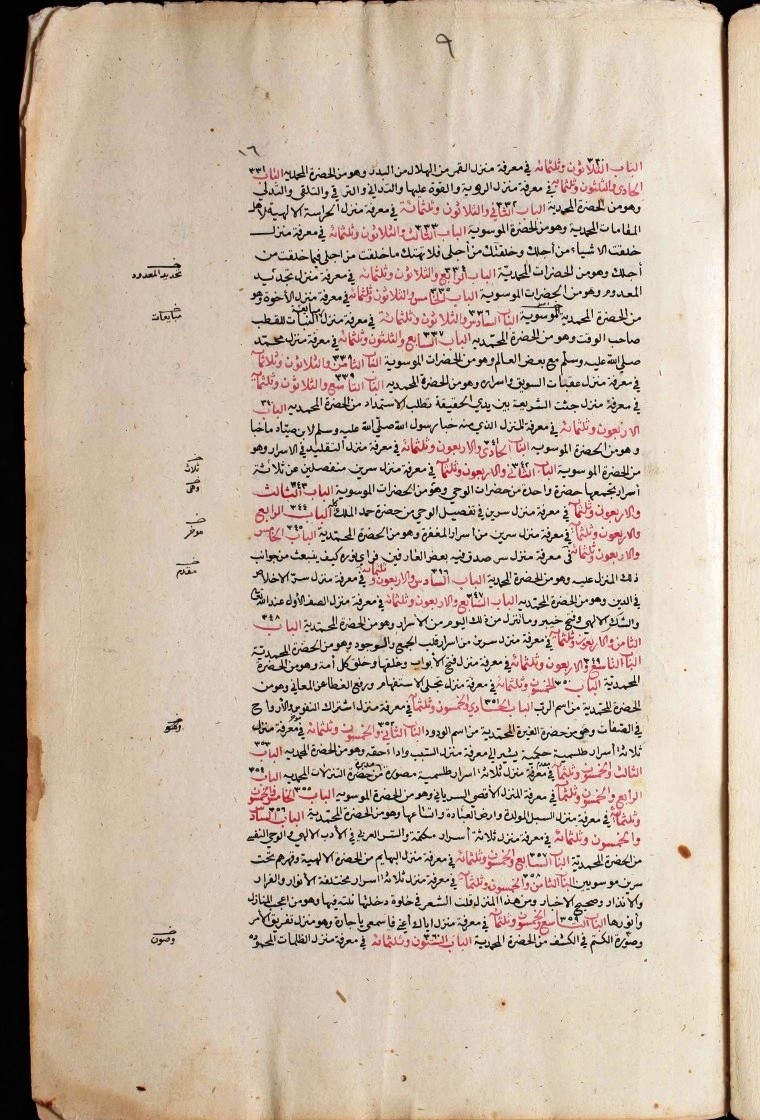 ٩
١٦
الباب ٣٣٠ الثلاثون وثلثمائة في معرفة منزل القمر من الهلال من البدر وهو من الحضرة المحمدية الباب ٣٣١
الحادي والثلثون وثلثمائة في معرفة منزل الروية والقوة عليها والتداني والترقي والتلقي والتدلي
وهو من الحضرة المحمدية الباب ٣٣٢ الثاني والثلاثون وثلثمائة في معرفة منزل الحراسة الالهية لاهل
المقامات المحمدية وهو من الحضرة الموسوية الباب ٣٣٣ الثالث والثلاثون وثلثمائة في معرفة منزل
خلقت الاشياء من اجلك وخلقتك من اجلي فلا تهتك ما خلقت من اجلي فيما خلقت من
أجلك وهو من الحضرات المحمدية الباب ٣٣٤ الرابع والثلاثون وثلثمائة في معرفة منزل تجديد
المعدوم وهو من الحضرات الموسوية الباب ٣٣٥ الخامس والثلاثون وثلثمائة في معرفة منزل الأخوة وهو
من الحضرة المحمدية الموسوية الباب ٣٣٦ السادس والثلاثون وثلثمائة في معرفة منزل مبايعة النبات للقطب
صاحب الوقت وهو من الحضرة المحمدية الباب ٣٣٧ السابع والثلثون وثلثمائة في معرفة منزل محمد
صلى الله عليه وسلم مع بعض العالم وهو من الحضرات الموسوية الباب ٣٣٨ الثامن والثلاثون وثلاثمائة
في معرفة منزل عقبات السويق واسراره وهو من الحضرة المحمدية الباب ٣٣٩ التاسع والثلاثون وثلثمائة
في معرفة منزل جثت الشريعة بين يدي الحقيقة تطلب الاستمداد من الحضرة المحمدية الباب ٣٤٠
الاربعون وثلثمائة في معرفة المنزل الذي منه خبا رسول الله صلى الله عليه وسلم لابن صياد ما خبا
وهو من الحضرة الموسوية الباب ٣٤١ الحادي والاربعون وثلثمائة في معرفة منزل التقليد في الاسرار وهو
من الحضرة الموسوية الباب ٣٤٢ الثاني والاربعون وثلثمائة في معرفة منزل سرين منفصلين عن ثلاثة
أسرار يجمعها حضرة واحدة من حضرات الوحي وهو من الحضرات الموسوية الباب ٣٤٣ الثالث
والاربعون وثلثمائة في معرفة منزل سرين في تفصيل الوحي من حضرة حمد الملك كله الباب ٣٤٤ الرابع
والاربعون وثلثمائة في معرفة منزل سرين من اسرار المغفرة وهو من الحضرة المحمدية الباب ٣٤٥ الخامس
والاربعون وثلثمائة في معرفة منزل سر صدق فيه بعض العارفين فراى نوره كيف ينبعث من جوانب
ذلك المنزل عليه وهو من الحضرة المحمدية الباب ٣٤٦ السادس والاربعون وثلثمائة في معرفة منزل سر الاخلاص
في الدين وهو من الحضرة المحمدية الباب ٣٤٧ السابع والاربعون وثلثمائة في معرفة منزل الصف الأول عند الله تعالى
الباب ٣٤٨
الثامن والاربعون وثلثمائة في معرفة منزل سرين من اسرار قلب الجمع والوجود وهو من الحضرة المحمدية
الباب ٣٤٩ التاسع والاربعون وثلثمائة في معرفة منزل فتح الأبواب وغلقها وخلق كل أمة وهو من الحضرة
المحمدية الباب ٣٥٠ الخمسون وثلثمائة في معرفة منزل تجلى الاستفهام ورفع الغطا عن المعاني وهو من
الحضرة المحمدية من اسم الرب الباب ٣٥١ الحادي والخمسون وثلثمائة في معرفة منزل اشتراك النفوس والارواح
في الصفات وهو من حضرة الغيرة المحمدية من اسم الودود الباب ٣٥٢ الثاني والخمسون وثلثمائة في معرفة منزل
ثلاثة أسرار طلسمية حكمية يشير الى معرفة منزل السبب واداء حقه وهو من الحضرة المحمدية الباب ٣٥٣
الثالث والخمسون وثلثمائة في معرفة منزل ثلاثة اسرار طلسمية مصورة مدبرة من حضرة التنزلات المحمدية الباب ٣٥٤
الرابع والخمسون وثلثمائة في معرفة المنزل الأقصى السرياني وهو من الحضرة الموسوية الباب ٣٥٥ الخامس والخمسون
وثلثمائة في معرفة منزل السبل المولدة وارض العبادة واتساعها وهو من الحضرة المحمدية الباب ٣٥٦ السادس
والخمسون وثلثمائة في معرفة منزل ثلاثة أسرار مكتمة والسر العربي في الأدب الالهي والوحي النفسي
من الحضرة المحمدية الباب ٣٥٧ السابع والخمسون وثلثمائة في معرفة منزل البهايم من الحضرة الالهية وقهرهم تحت
سرين موسويين الباب ٣٥٨ الثامن والخمسون وثلثمائة في معرفة منزل ثلاثة اسرار مختلفة الأنوار والفرار
والانذار وصحيح الاخبار ومن هذا المنزل قلت الشعر في خلوة دخلتها نلته فيها وهو من اعجب المنازل
وأنورها الباب ٣٥٩ التاسع والخمسون وثلثمائة في معرفة منزل اياك أعني فاسمعي يا جارة وهو منزل تفريق الأمر
وصورة الكتم في الكشف من الحضرة المحمدية الباب ٣٦٠ الستون وثلثمائة في معرفة منزل الظلمات المحمودة
تجديد المعدود
مبايعات
ثلاث
وهي
موخر
مقدم